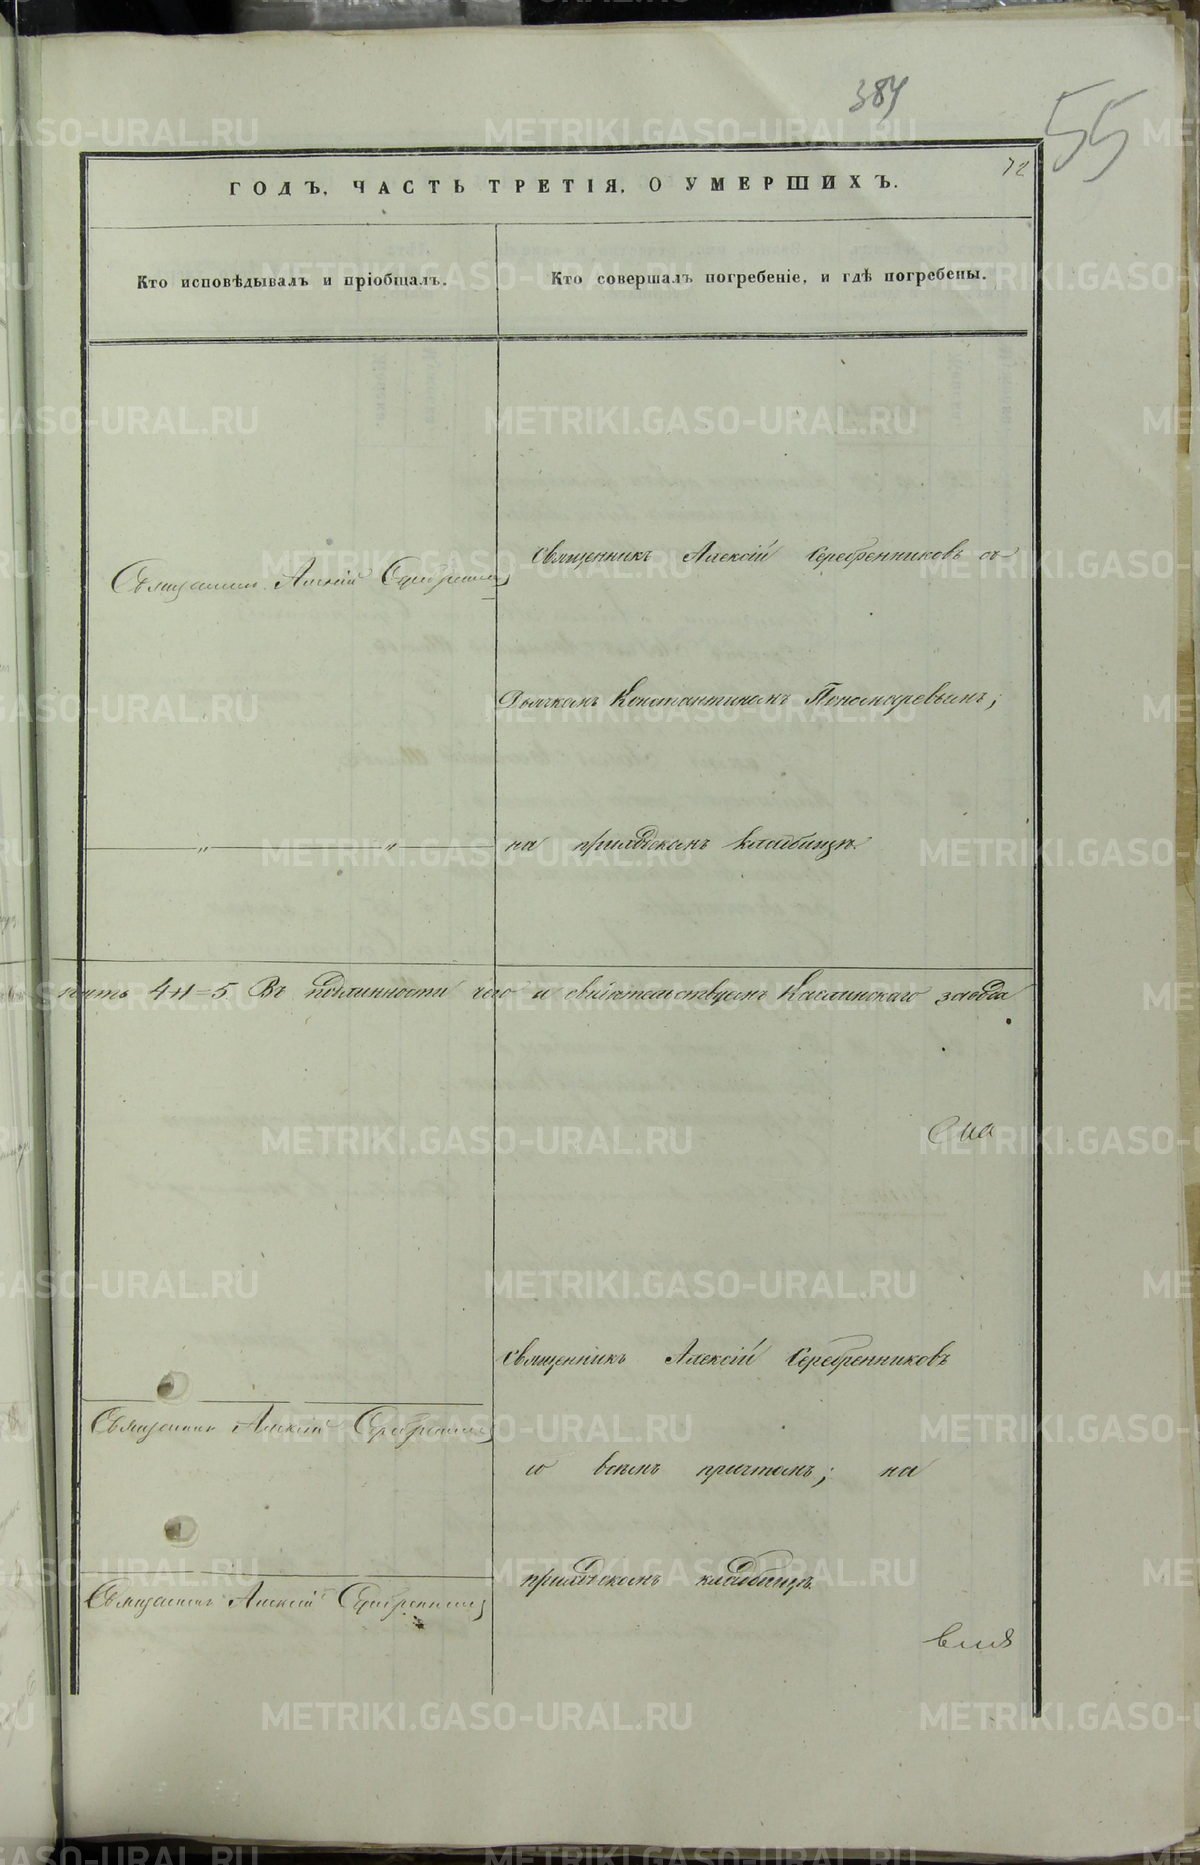 384
55
72
ГОДЪ, ЧАСТЬ ТРЕТІЯ, О УМЕРШИХЪ.
Кто исповѣдывалъ и пріобщалъ.
Кто совершалъ погребеніе, и гдѣ погребены.
Священникъ Алексій Серебренниковъ съ
Священникъ Алексій Серебренниковъ
Дьячкомъ Константиномъ Пономаревымъ;
на приходскомъ кладбищѣ.
пять 4+1=5 Въ подлинности чего и свидѣтельствуемъ Каслинскаго завода
Священникъ Алексій Серебренниковъ
Священникъ Алексій Серебренниковъ
со всѣмъ причтомъ; на
приходскомъ кладбищѣ.
Священникъ Алексій Серебренниковъ
METRIKI.GASO-URAL.RU